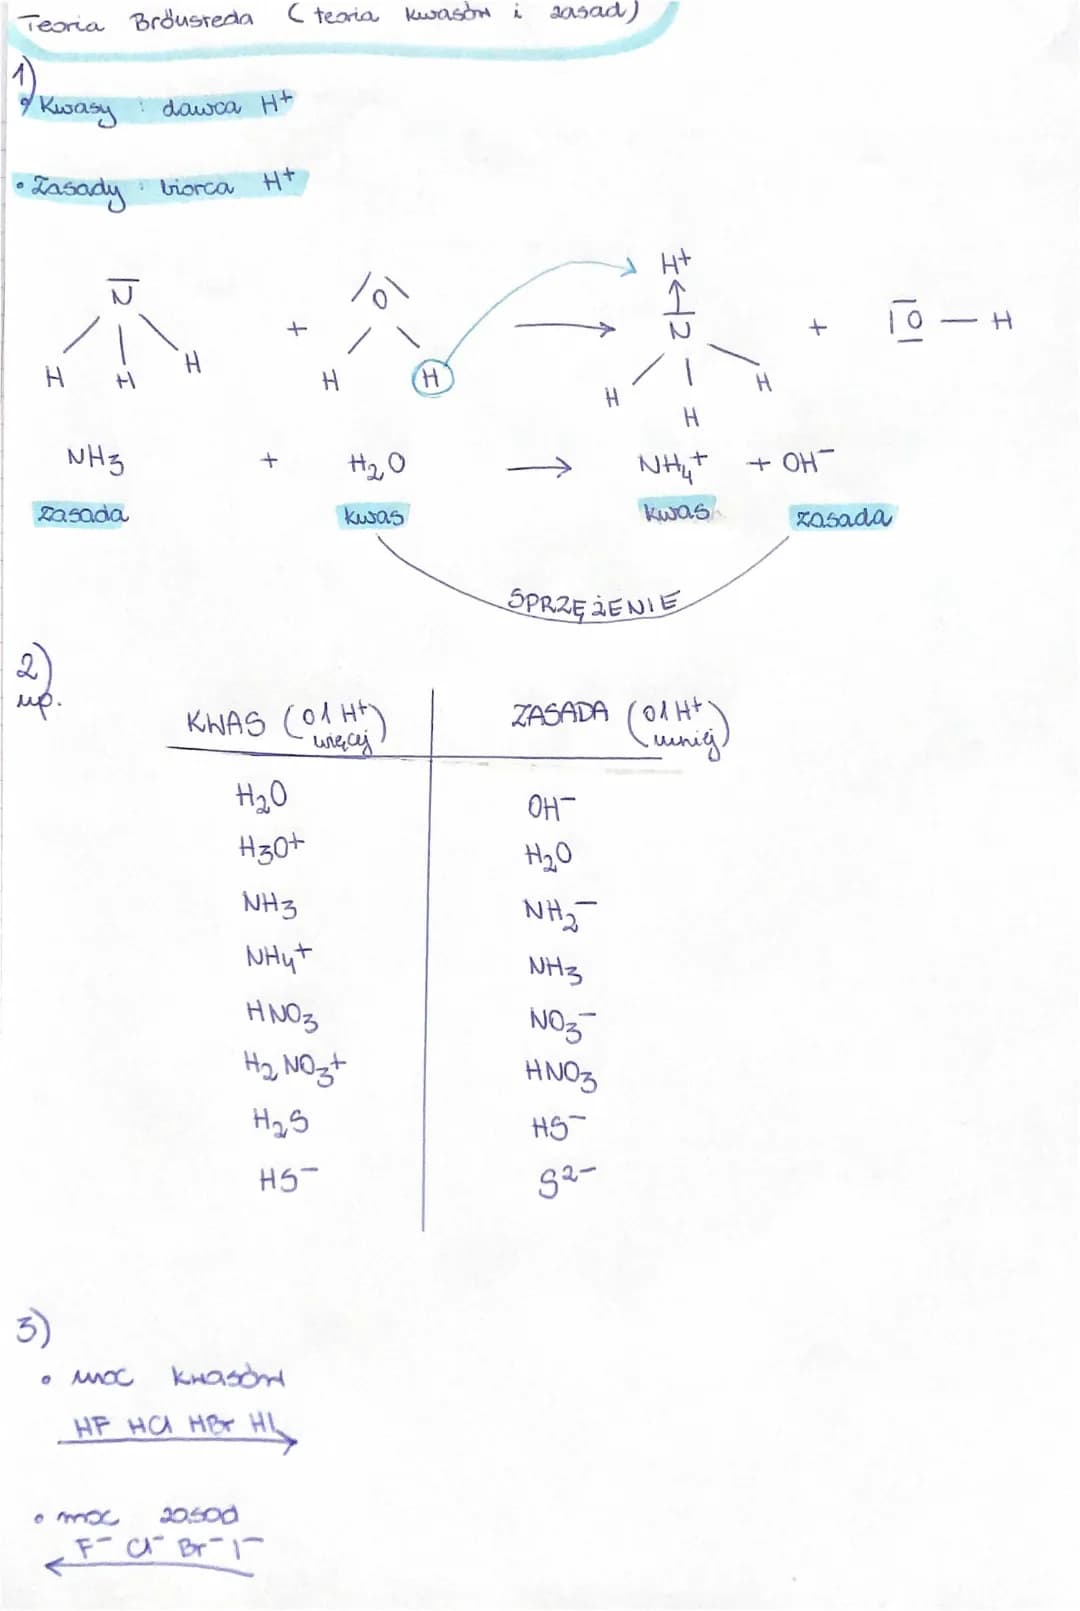 Teoria Brőusteda (teoria kwasów i zasad)
1)
• Kwasy : dawca H+
• Zasady : biorca H+
N H H H + O H H → H+ N H H H + O — H
NH3 + H2O → NH4+ + OH-
zasada kwas kwas zasada
SPRZĘŻENIE
2)
np.
KWAS (o 1 H+ więcej) ZASADA (o 1 H+ mniej)
H2O OH-
H3O+ H2O
NH3 NH2-
NH4+ NH3
HNO3 NO3-
H2NO3+ HNO3
H2S HS-
HS- S2-
3)
• moc kwasów
HF HCl HBr HI
• moc zasad
F- Cl- Br- I-